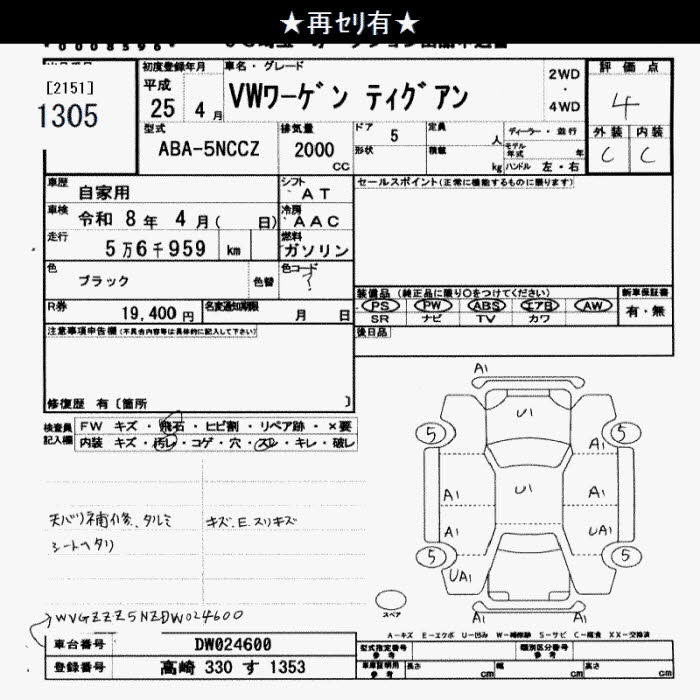 ★再ｾﾘ有★
[2151]
1305
初度登録年月
平成
25 4月
車名・グレード
VWワーゲン ティグアン
2WD
・
4WD
評価点
4
外装 内装
C C
型式
ABA-5NCCZ
排気量
2000
CC
ドア 5
形状
定員 人
積載 kg
ディーラー・並行
モデル年式 年
ハンドル 左・右
車歴
自家用
シフト
AT
車検
令和 8年 4月( 日)
冷房
AAC
走行
5万6千959 km
燃料
ガソリン
色
ブラック
色替
色コード
?
R券
19,400円
名変通知期限
月 日
セールスポイント(正常に機能するものに限ります)
装備品(純正品に限り○をつけてください)
PS PW ABS エアB AW
SR ナビ TV カワ
新車保証書
有・無
後日品
注意事項申告欄(不具合内容等は具体的に記入して下さい)
修復歴 有〔箇所 〕
検査員
記入欄
FW キズ・飛石・ヒビ割・リペア跡・×要
内装 キズ・汚レ・コゲ・穴・スレ・キレ・破レ
天バリ補修、タルミ
シートヘタリ
キズ.E.スリキズ
WVGZZZ5NZDW024600
A1
U1
5 5
A1
A1 U1
A1 UA1
5 5
UA1
A1 A1
スペア
A-キズ E-エクボ U-凹み W-補修跡 S-サビ C-腐食 XX-交換済
車台番号
DW024600
登録番号
高崎 330 す 1353
型式指定番号
参考
類別区分番号
参考
車庫証明用
参考
長さ cm
幅 cm
高さ cm